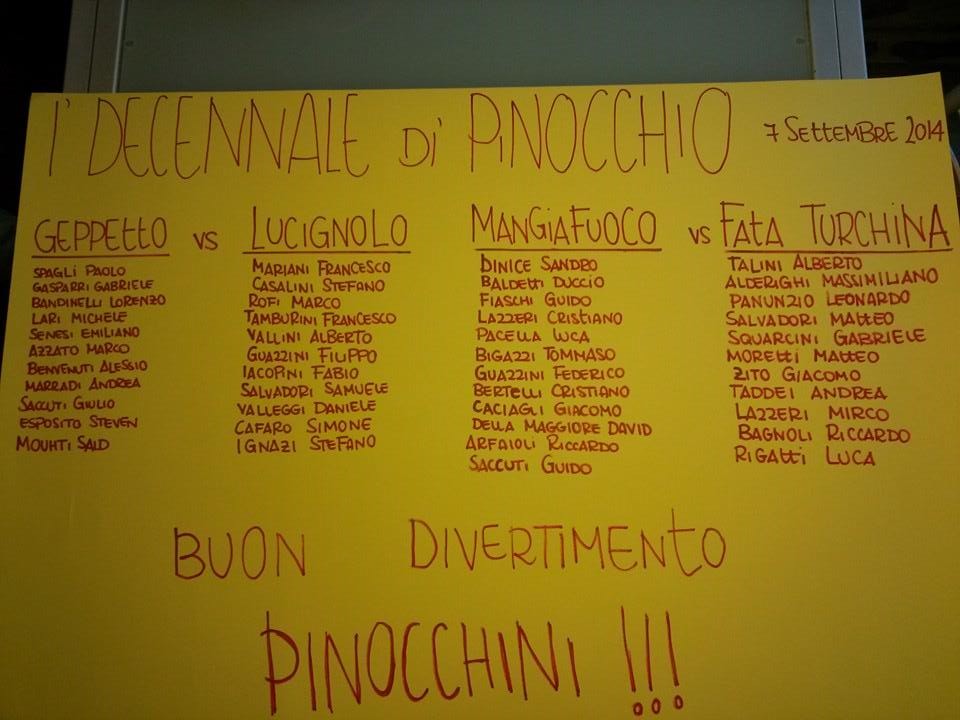 I' DECENNALE DI PINOCCHIO 7 SETTEMBRE 2014
GEPPETTO VS LUCIGNOLO
SPAGLI PAOLO
GASPARRI GABRIELE
BANDINELLI LORENZO
LARI MICHELE
SENESI EMILIANO
AZZATO MARCO
BENVENUTI ALESSIO
MARRADI ANDREA
SACCUTI GIULIO
ESPOSITO STEVEN
MOUHTI SAID
MARIANI FRANCESCO
CASALINI STEFANO
ROFI MARCO
TAMBURINI FRANCESCO
VALLINI ALBERTO
GUAZZINI FILIPPO
IACOPINI FABIO
SALVADORI SAMUELE
VALLEGGI DANIELE
CAFARO SIMONE
IGNAZI STEFANO
MANGIAFUOCO VS FATA TURCHINA
DINICE SANDRO
BALDETTI DUCCIO
FIASCHI GUIDO
LAZZERI CRISTIANO
PACELLA LUCA
BIGAZZI TOMMASO
GUAZZINI FEDERICO
BERTELLI CRISTIANO
CACIAGLI GIACOMO
DELLA MAGGIORE DAVID
ARFAIOLI RICCARDO
SACCUTI GUIDO
TALINI ALBERTO
ALDERIGHI MASSIMILIANO
PANUNZIO LEONARDO
SALVADORI MATTEO
SQUARCINI GABRIELE
MORETTI MATTEO
ZITO GIACOMO
TADDEI ANDREA
LAZZERI MIRCO
BAGNOLI RICCARDO
RIGATTI LUCA
BUON DIVERTIMENTO
PINOCCHINI !!!